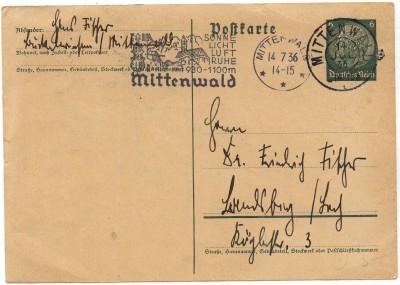 Absender: Hans Fischer
Mittenwald
Wohnort, auch Zustell- oder Leitpostamt
Straße, Hausnummer, Gebäudeteil, Stockwerk od. Postschließfachnummer
SONNE
LICHT
LUFT
RUHE
930-1100m
Mittenwald
Postkarte
MITTENWALD
14 7.36
14-15
MITTENW
6
6
Deutsches Reich
Herrn
Dr. Friedrich Fischer
Landsberg / Lech
3
Straße, Hausnummer, Gebäudeteil, Stockwerk oder Postschließfachnummer